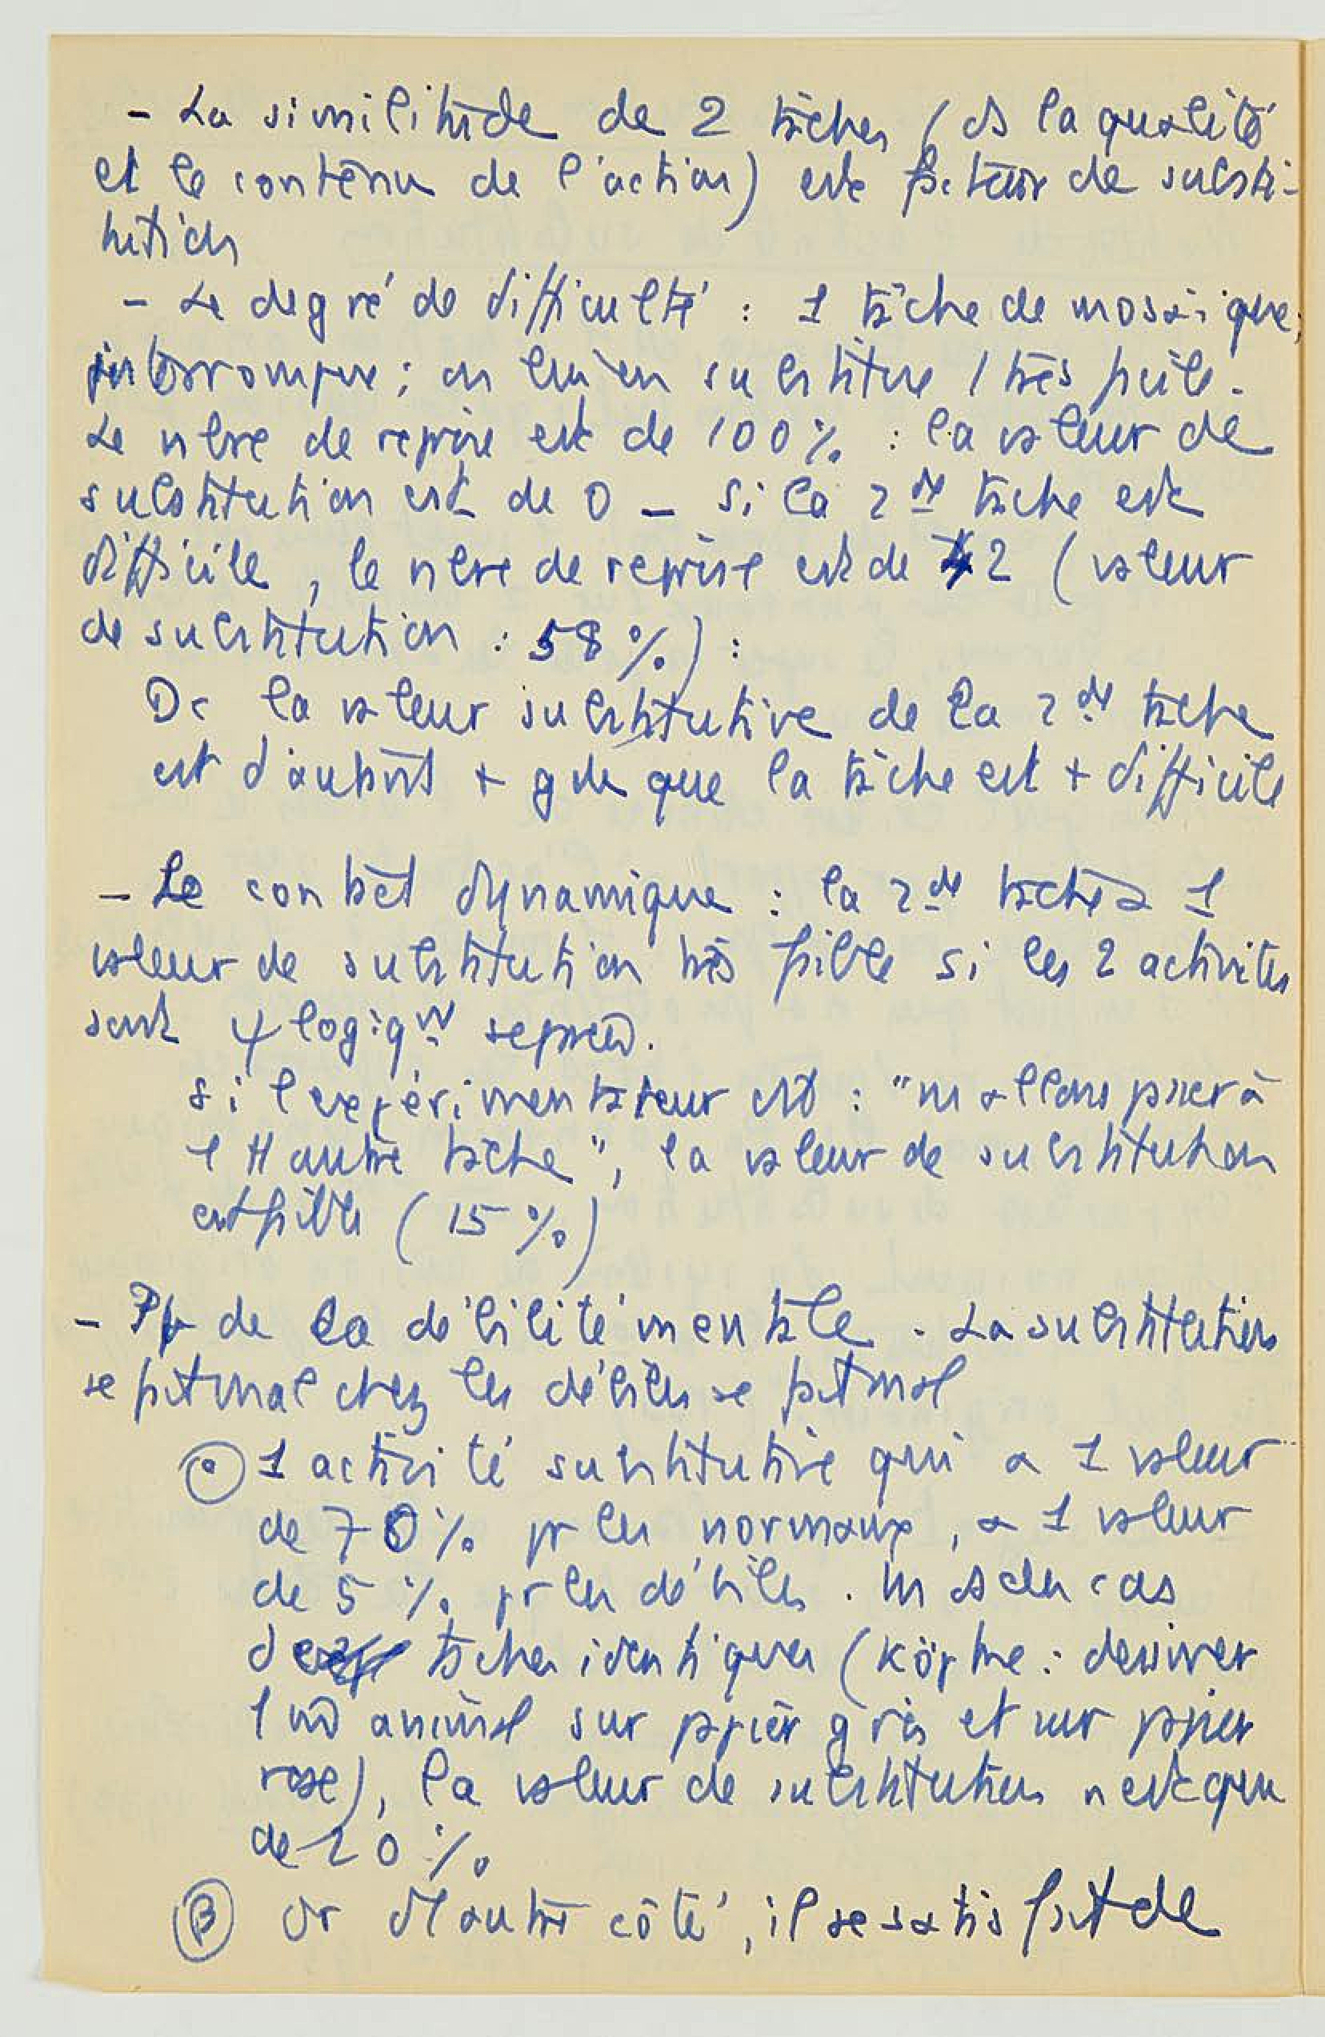 - La similitude de 2 tâches (ds la qualité
et le contenu de l'action) est facteur de substi-
tution
- Le degré de difficulté : 1 tâche de mosaïque,
interrompue ; on lui en substitue 1 très facile.
Le nbre de reprise est de 100% : la valeur de
substitution est de 0 - Si la 2de tâche est
difficile, le nbre de reprise est de 42 (valeur
de substitution : 58%) :
Dc la valeur substitutive de la 2de tâche
est d'autant + gde que la tâche est + difficile
- Le contact dynamique : la 2de tâche a 1
valeur de substitution très faible si les 2 activités
sont ψlogiqt séparées.
Si l'expérimentateur dit : "ns allons passer à
1 autre tâche", la valeur de substitution
est faible (15%)
- de la débilité mentale. La substitution
se fait mal chez les débiles se fait mal
1 activité substitutive qui a 1 valeur
de 70% pr les normaux, a 1 valeur
de 5% pr les débiles. M ds le cas
de tâches identiques (Köpke : dessiner
1 m̂ animal sur papier gris et sur papier
rose), la valeur de substitution n'est que
de 20%
β Or d'autre côté, il se satisfait de